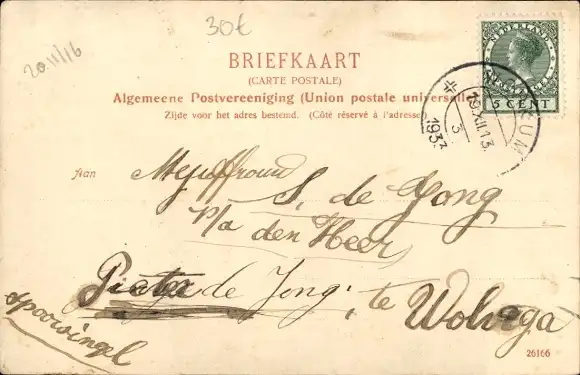 30€
20.11/16
BRIEFKAART
(CARTE POSTALE)
Algemeene Postvereeniging (Union postale universelle)
Zijde voor het adres bestemd. (Côté réservé à l'adresse)
NEDERLAND
5 CENT
19.XII.13
3
1933
UM
Aan Mejuffrouw
S. de Jong
p/a den Heer
Pieter de Jong, te Wolvega
Spoorsingel
26166